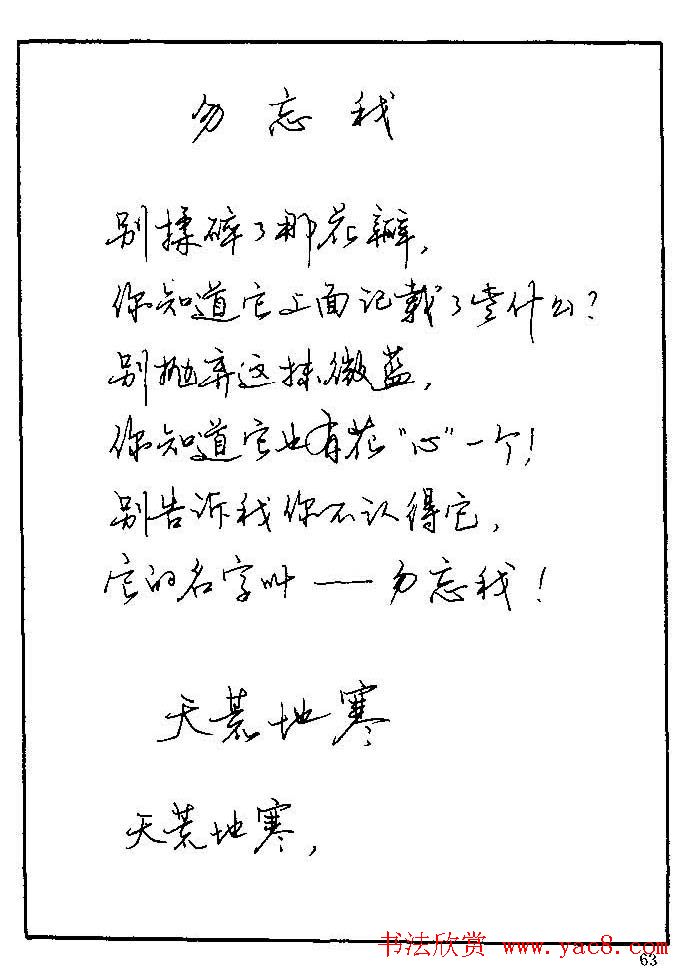 勿忘我
别揉碎了那花瓣,
你知道它上面记载了些什么?
别抛弃这抹微蓝,
你知道它也有花“心”一个!
别告诉我你不认得它,
它的名字叫——勿忘我!
天荒地寒
天荒地寒,
书法欣赏 www.yac8.com
63